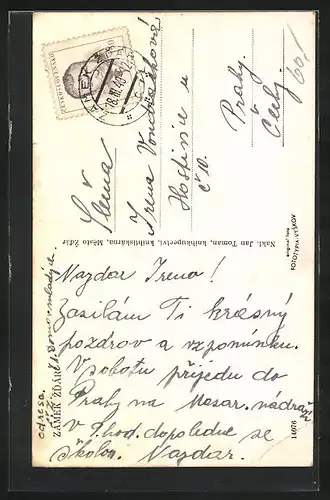 Nazdar Ireno!
Zasílám Ti krásný
pozdrav a vzpomínku.
V sobotu přijedu do
Prahy na Masar. nádraží
v 9 hod. dopoledne se
školou. Nazdar.
adresa.
ZÁMEK ŽĎÁR
Nakl. Jan Toman, knihkupectví, knihtiskárna, Město Žďár
original foto
FOTOTYPIA-VYŠKOV
Slečna
Irena
Hostivice u
Prahy.
č 10.
Čechy
ČESKOSLOVENSKO
60,1